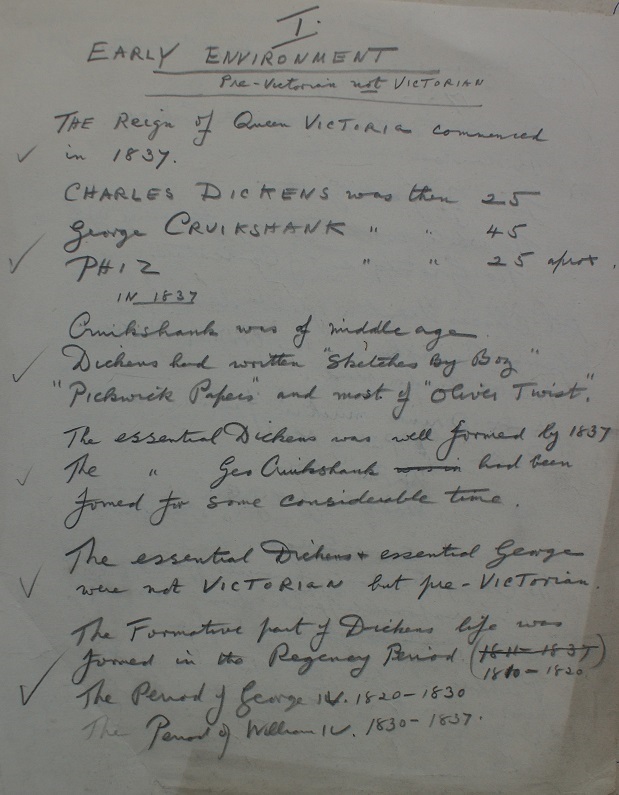 I.
EARLY ENVIRONMENT
Pre-Victorian not VICTORIAN
THE Reign of Queen VICTORIA commenced
in 1837.
CHARLES DICKENS was then 25
George CRUIKSHANK " " 45
PHIZ " " 25 aprox.
IN 1837
Cruikshank was of middle age
Dickens had written "Sketches By Boz"
"Pickwick Papers" and most of "Oliver Twist".
The essential Dickens was well formed by 1837
The " Geo Cruikshank had been
formed for some considerable time.
The essential Dickens + essential George
were not VICTORIAN but pre-VICTORIAN.
The Formative part of Dickens life was
formed in the Regency Period. (1811-1837)
1810-1820
The Period of George IV. 1820-1830
The Period of William IV. 1830-1837.